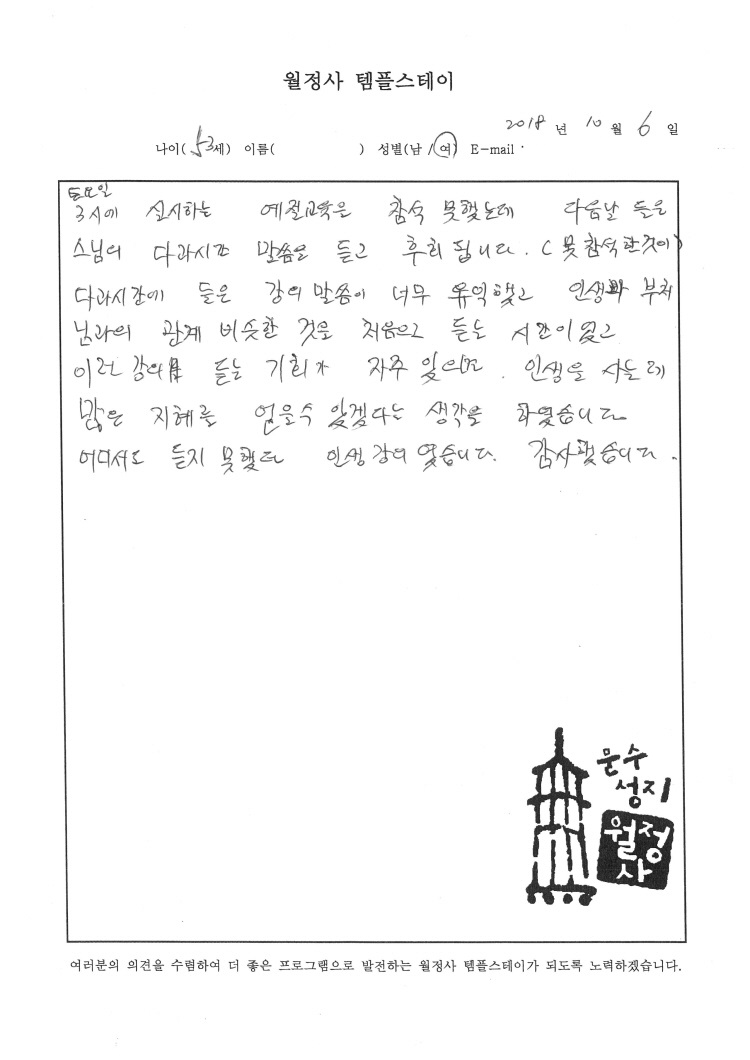 월정사 템플스테이
2018 년 10 월 6 일
나이( 53세) 이름( ) 성별(남 /여) E-mail
토요일
3시에 실시하는 예절교육은 참석 못했는데 다음날 들은
스님의 다과시간 말씀을 듣고 후회 됩니다. (못 참석한것이)
다과시간에 들은 강의 말씀이 너무 유익했고 인생과 부처
님과의 관계 비슷한 것을 처음으로 듣는 시간이 었고
이런 강의를 듣는 기회가 자주 있으면 . 인생을 사는데
많은 지혜를 얻을수 있겠다는 생각을 하였습니다
어디서도 듣지 못했던 인생 강의 였습니다. 감사했습니다.
문수
성지
월정
사
여러분의 의견을 수렴하여 더 좋은 프로그램으로 발전하는 월정사 템플스테이가 되도록 노력하겠습니다.